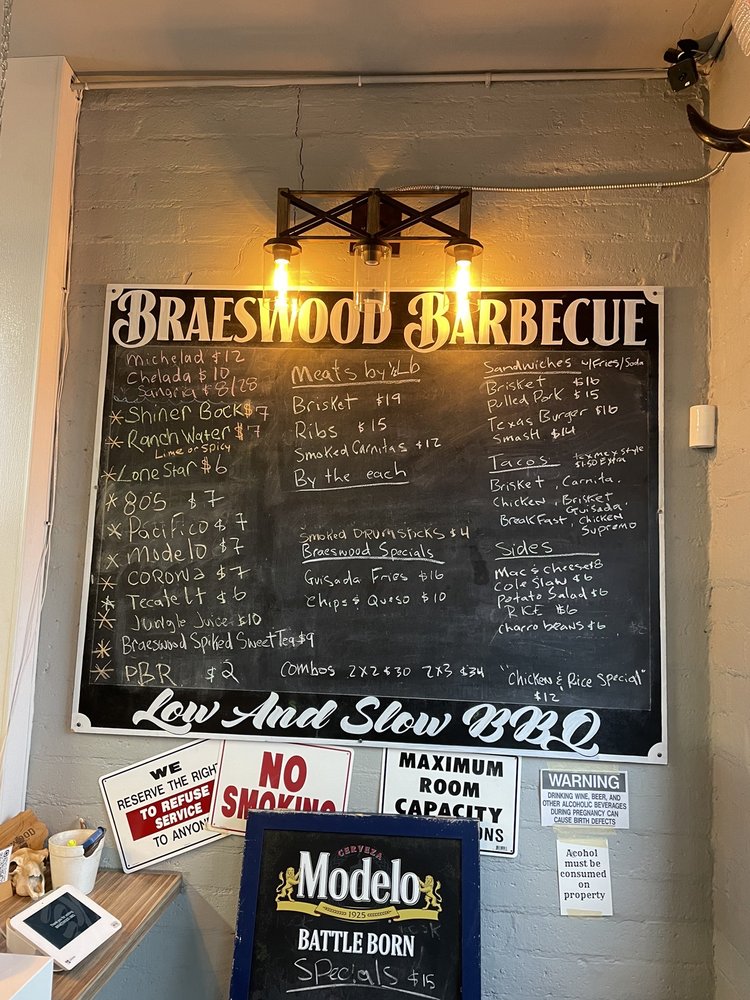 BRAESWOOD BARBECUE
Michelad $12
Chelada $10
Sangria $8/28
* Shiner Bock $7
* Ranch Water $7
Lime or Spicy
* Lone Star $6
* 805 $7
* Pacifico $7
* Modelo $7
* Corona $7
* Tecate Lt $6
* Jungle Juice $10
* Braeswood Spiked Sweet Tea $9
* PBR $2
Meats by ½ Lb
Brisket $19
Ribs $15
Smoked Carnitas $12
By the each
Smoked Drumsticks $4
Braeswood Specials
Guisada Fries $16
Chips & Queso $10
Combos 2x2 $30 2x3 $34
Sandwiches w/Fries/Soda
Brisket $16
Pulled Pork $15
Texas Burger $16
Smash $14
Tacos Tex mex style
$1.50 Extra
Brisket, Carnita,
Chicken, Brisket
Guisada,
Breakfast, Chicken
Supremo
Sides
Mac & Cheese $8
Cole Slaw $6
Potato Salad $6
RICE $6
Charro beans $6
"Chicken & Rice Special"
$12
Low And Slow BBQ
WE
RESERVE THE RIGHT
TO REFUSE
SERVICE
TO ANYON
NO
SMOKING
MAXIMUM
ROOM
CAPACITY
ONS
WARNING
DRINKING WINE, BEER, AND
OTHER ALCOHOLIC BEVERAGES
DURING PREGNANCY CAN
CAUSE BIRTH DEFECTS
Acohol
must be
consumed
on
property
CERVEZA
Modelo
1925
BATTLE BORN
Specials $15